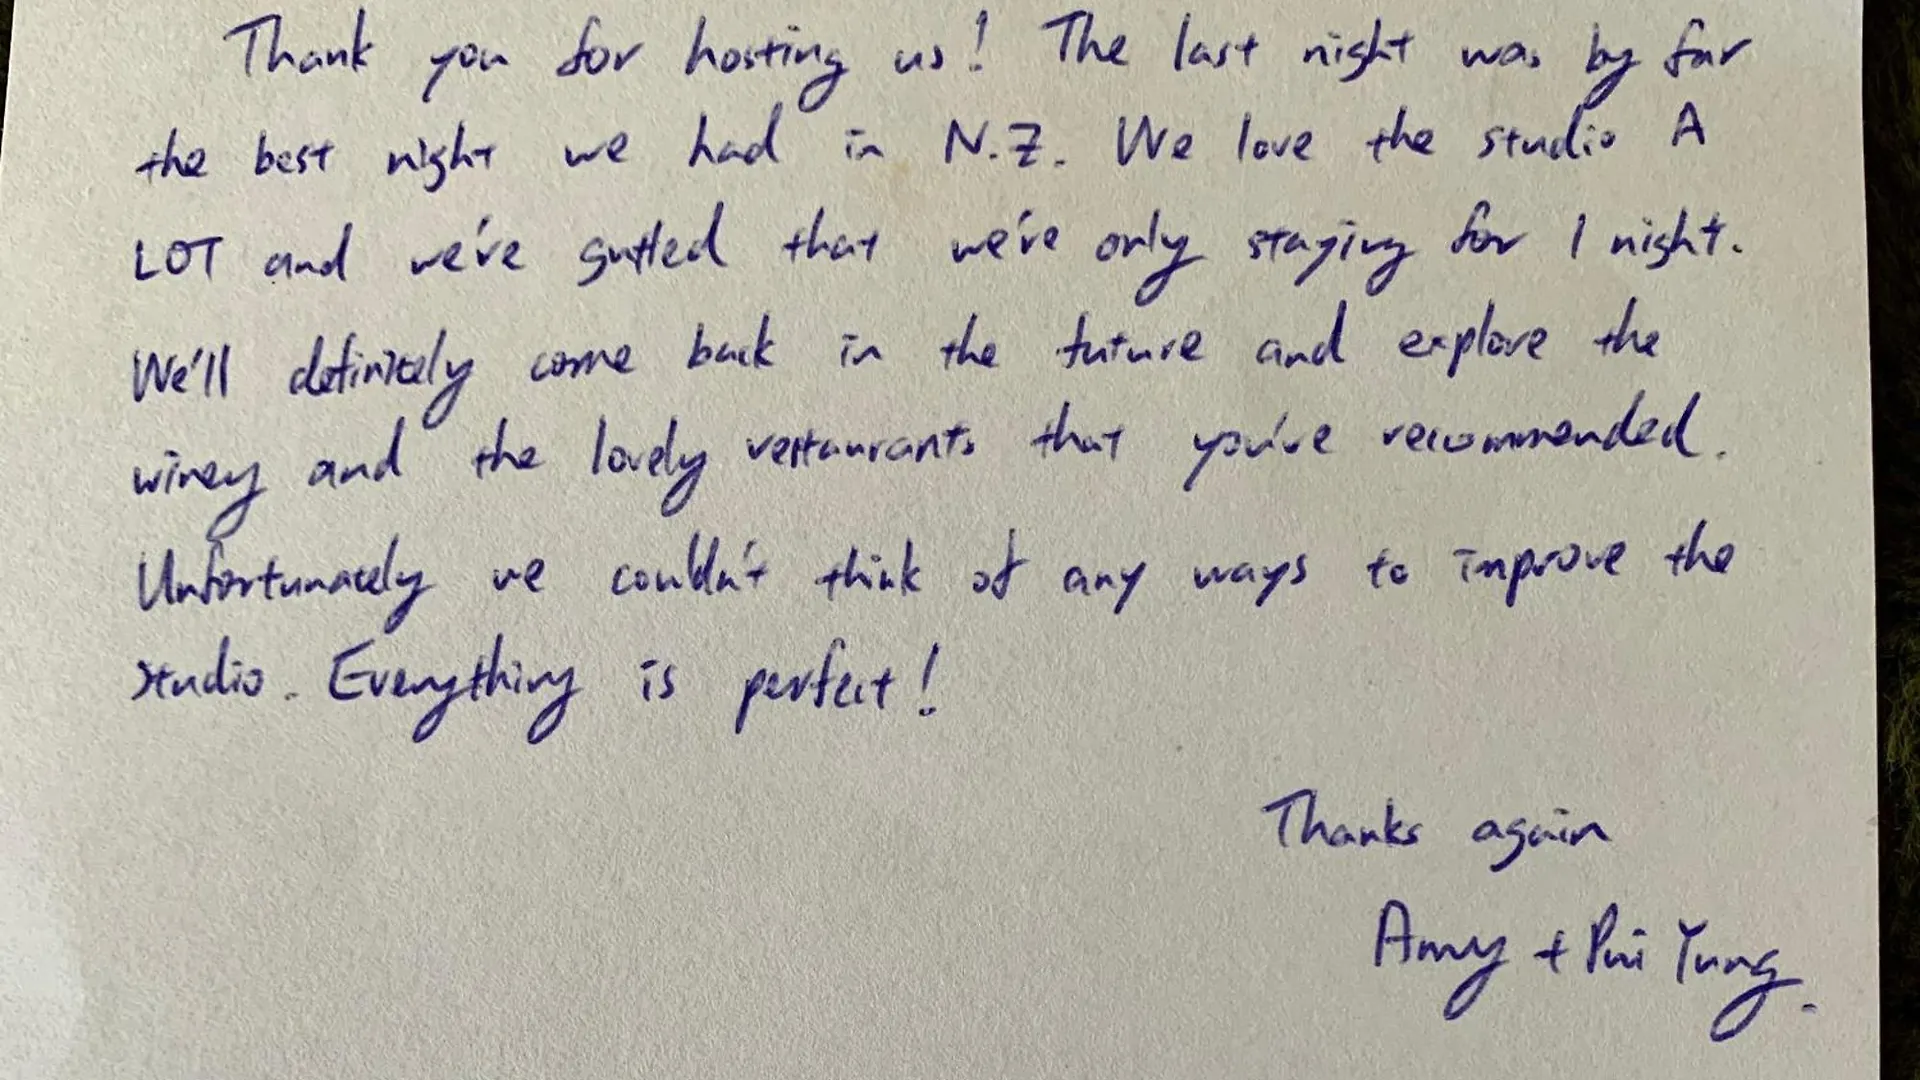 Thank you for hosting us! The last night was by far
the best night we had in N.Z. We love the studio A
LOT and we've gutted that we're only staying for 1 night.
We'll definitely come back in the future and explore the
winey and the lovely restaurants that you've recommended.
Unfortunately we couldn't think of any ways to improve the
studio. Everything is perfect!
Thanks again
Amy + Pui Yung.